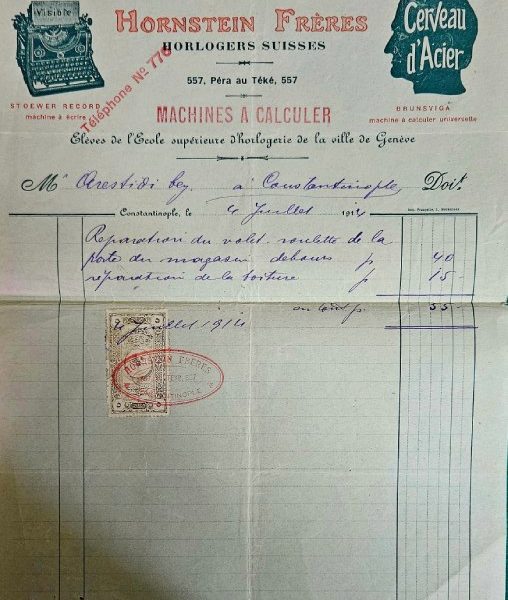 Visible
HORNSTEIN FRÈRES
HORLOGERS SUISSES
Cerveau
d'Acier
557, Péra au Téké, 557
Téléphone No 776
STOEWER RECORD
machine à écrire
MACHINES A CALCULER
BRUNSVIGA
machine à calculer universelle
Elèves de l'Ecole supérieure d'horlogerie de la ville de Genève
Mr Arestidi bey à Constantinople, Doit
Constantinople, le 4 Juillet 1914
Reparation du volet roulette de la
porte du magasin debours p 40
réparation de la toiture p 15-
en tout p. 55-
4 Juillet 1914
HORNSTEIN FRÈRES